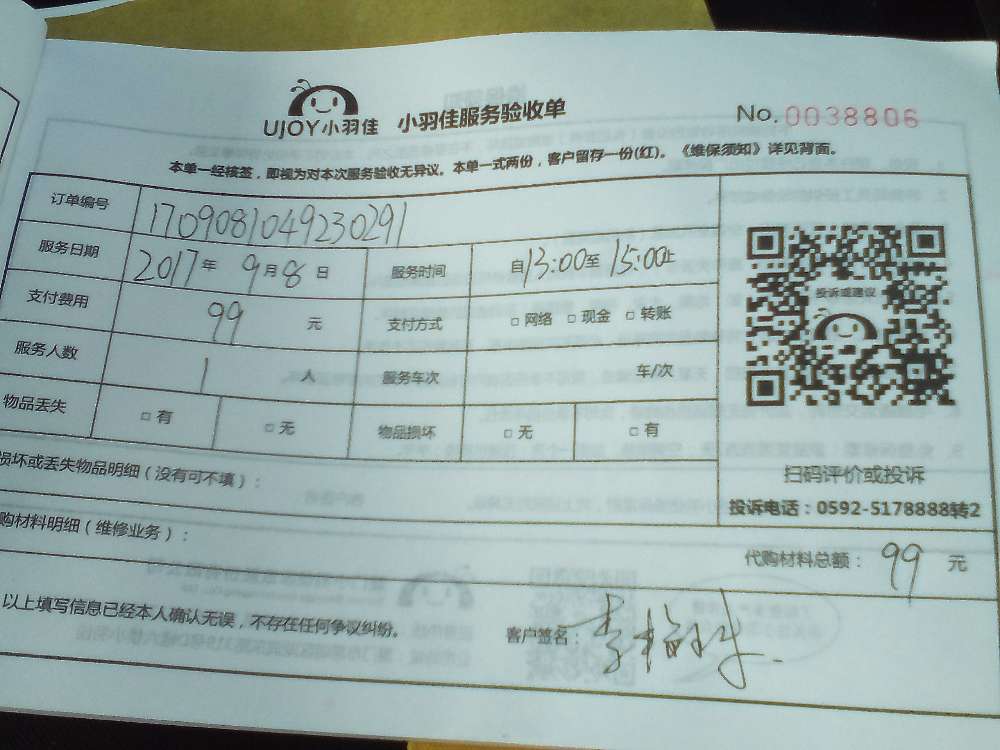 UJOY小羽佳 小羽佳服务验收单 No.0038806
本单一经核签，即视为对本次服务验收无异议。本单一式两份，客户留存一份(红)。《维保须知》详见背面。
订单编号 1709081049230291
服务日期 2017年 9月8日 服务时间 自13:00至15:00止
支付费用 99 元 支付方式 □网络 □现金 □转账
服务人数 1 人 服务车次 车/次
物品丢失 □有 □无 物品损坏 □无 □有
投诉或建议
扫码评价或投诉
投诉电话：0592-5178888转2
损坏或丢失物品明细（没有可不填）：
购材料明细（维修业务）：
代购材料总额：99 元
以上填写信息已经本人确认无误，不存在任何争议纠纷。 客户签名：